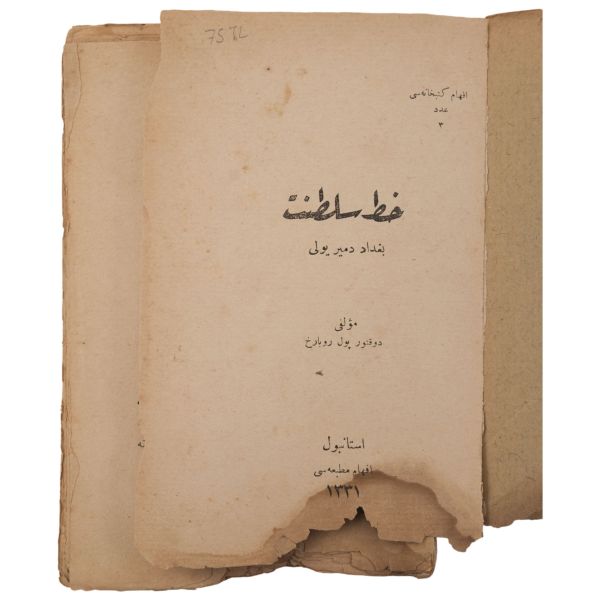 75 TL
افهام كتبخانه‌سی
عدد
٣
خط سلطنت
بغداد دمير يولی
مؤلفی
دوقتور پول روبارخ
استانبول
افهام مطبعه‌سی
١٣٣١